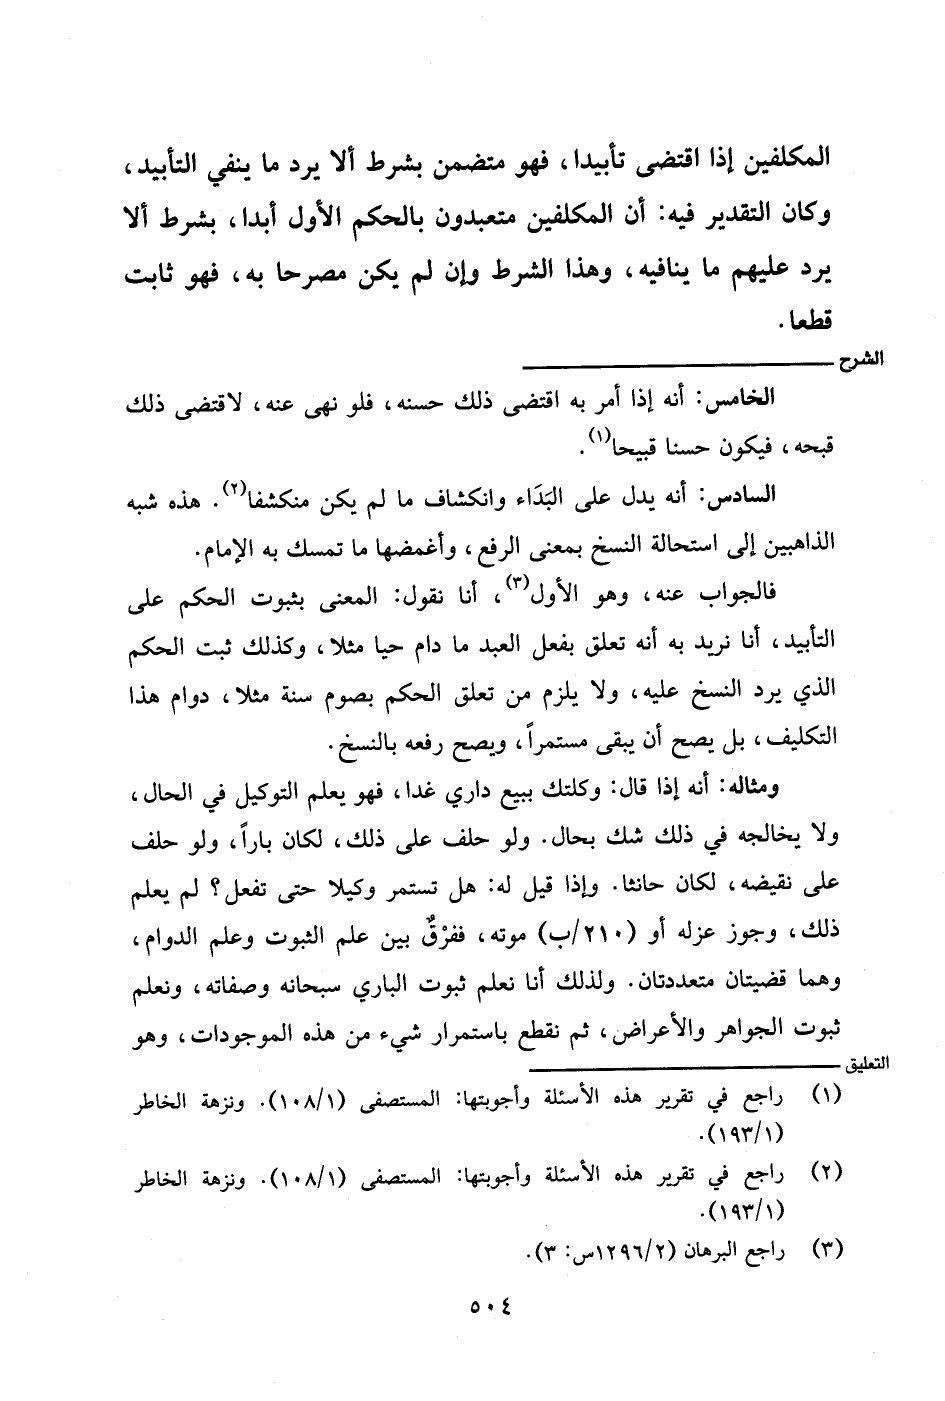 المكلفين إذا اقتضى تأبيدا، فهو متضمن بشرط ألا يرد ما ينفي التأبيد،
وكان التقدير فيه: أن المكلفين متعبدون بالحكم الأول أبدا، بشرط ألا
يرد عليهم ما ينافيه، وهذا الشرط وإن لم يكن مصرحا به، فهو ثابت
قطعا.
الشرح
الخامس: أنه إذا أمر به اقتضى ذلك حسنه، فلو نهى عنه، لاقتضى ذلك
قبحه، فيكون حسنا قبيحا(١).
السادس: أنه يدل على البَدَاء وانكشاف ما لم يكن منكشفا(٢). هذه شبه
الذاهبين إلى استحالة النسخ بمعنى الرفع، وأغمضها ما تمسك به الإمام.
فالجواب عنه، وهو الأول(٣)، أنا نقول: المعنى بثبوت الحكم على
التأبيد، أنا نريد به أنه تعلق بفعل العبد ما دام حيا مثلا، وكذلك ثبت الحكم
الذي يرد النسخ عليه، ولا يلزم من تعلق الحكم بصوم سنة مثلا، دوام هذا
التكليف، بل يصح أن يبقى مستمراً، ويصح رفعه بالنسخ.
ومثاله: أنه إذا قال: وكلتك ببيع داري غدا، فهو يعلم التوكيل في الحال،
ولا يخالجه في ذلك شك بحال. ولو حلف على ذلك، لكان باراً، ولو حلف
على نقيضه، لكان حانثا. وإذا قيل له: هل تستمر وكيلا حتى تفعل؟ لم يعلم
ذلك، وجوز عزله أو (٢١٠/ب) موته، ففرْقٌ بين علم الثبوت وعلم الدوام،
وهما قضيتان متعددتان. ولذلك أنا نعلم ثبوت الباري سبحانه وصفاته، ونعلم
ثبوت الجواهر والأعراض، ثم نقطع باستمرار شيء من هذه الموجودات، وهو
التعليق
(١) راجع في تقرير هذه الأسئلة وأجوبتها: المستصفى (١٠٨/١). ونزهة الخاطر
(١٩٣/١).
(٢) راجع في تقرير هذه الأسئلة وأجوبتها: المستصفى (١٠٨/١). ونزهة الخاطر
(١٩٣/١).
(٣) راجع البرهان (١٢٩٦/٢س: ٣).
٥٠٤